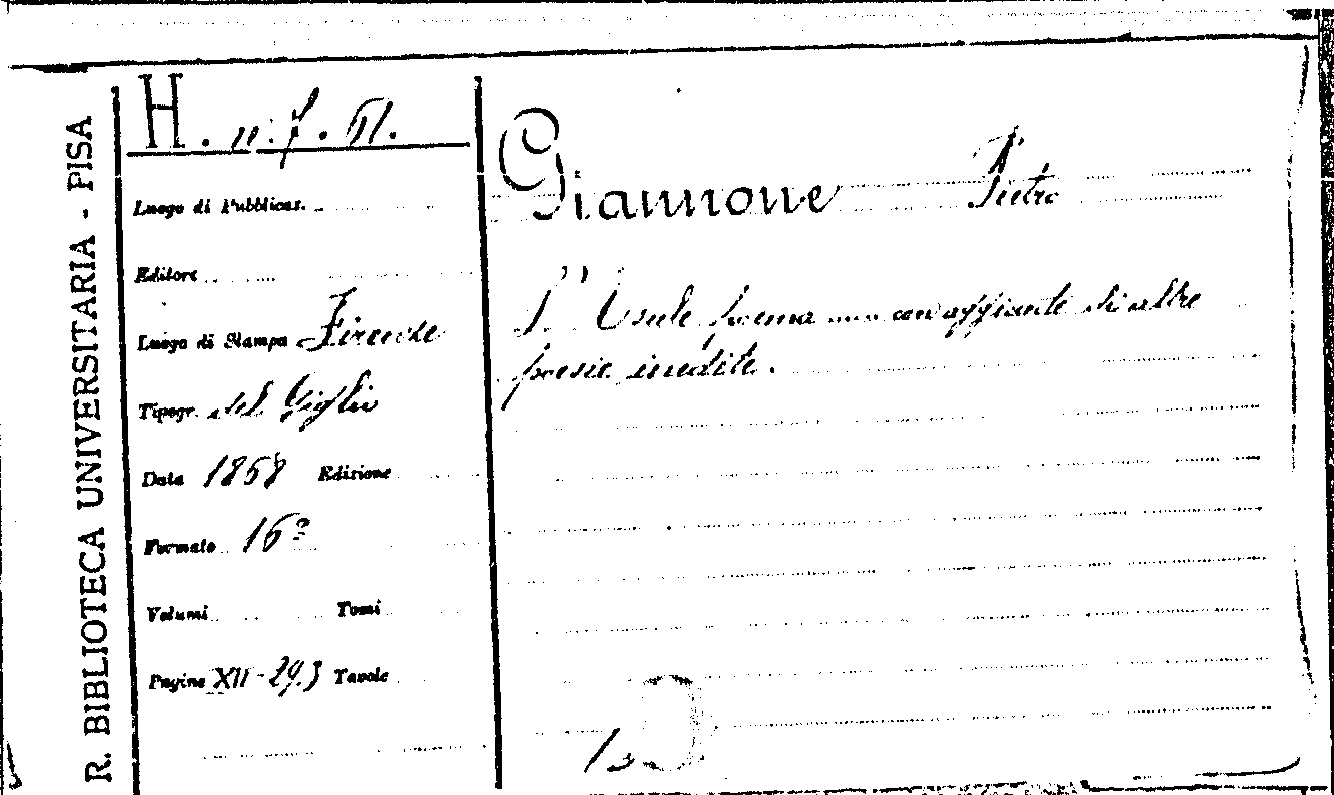 R. BIBLIOTECA UNIVERSITARIA - PISA
H. n. 7. 51.
Luogo di Pubblicaz.
Editore
Luogo di Stampa Firenze
Tipogr. del Giglio
Data 1868 Edizione
Formato 16º
Volumi Tomi
Pagine XII-293 Tavole
Giannone Pietro
L'Esule poema con aggiunte di altre
poesie inedite.